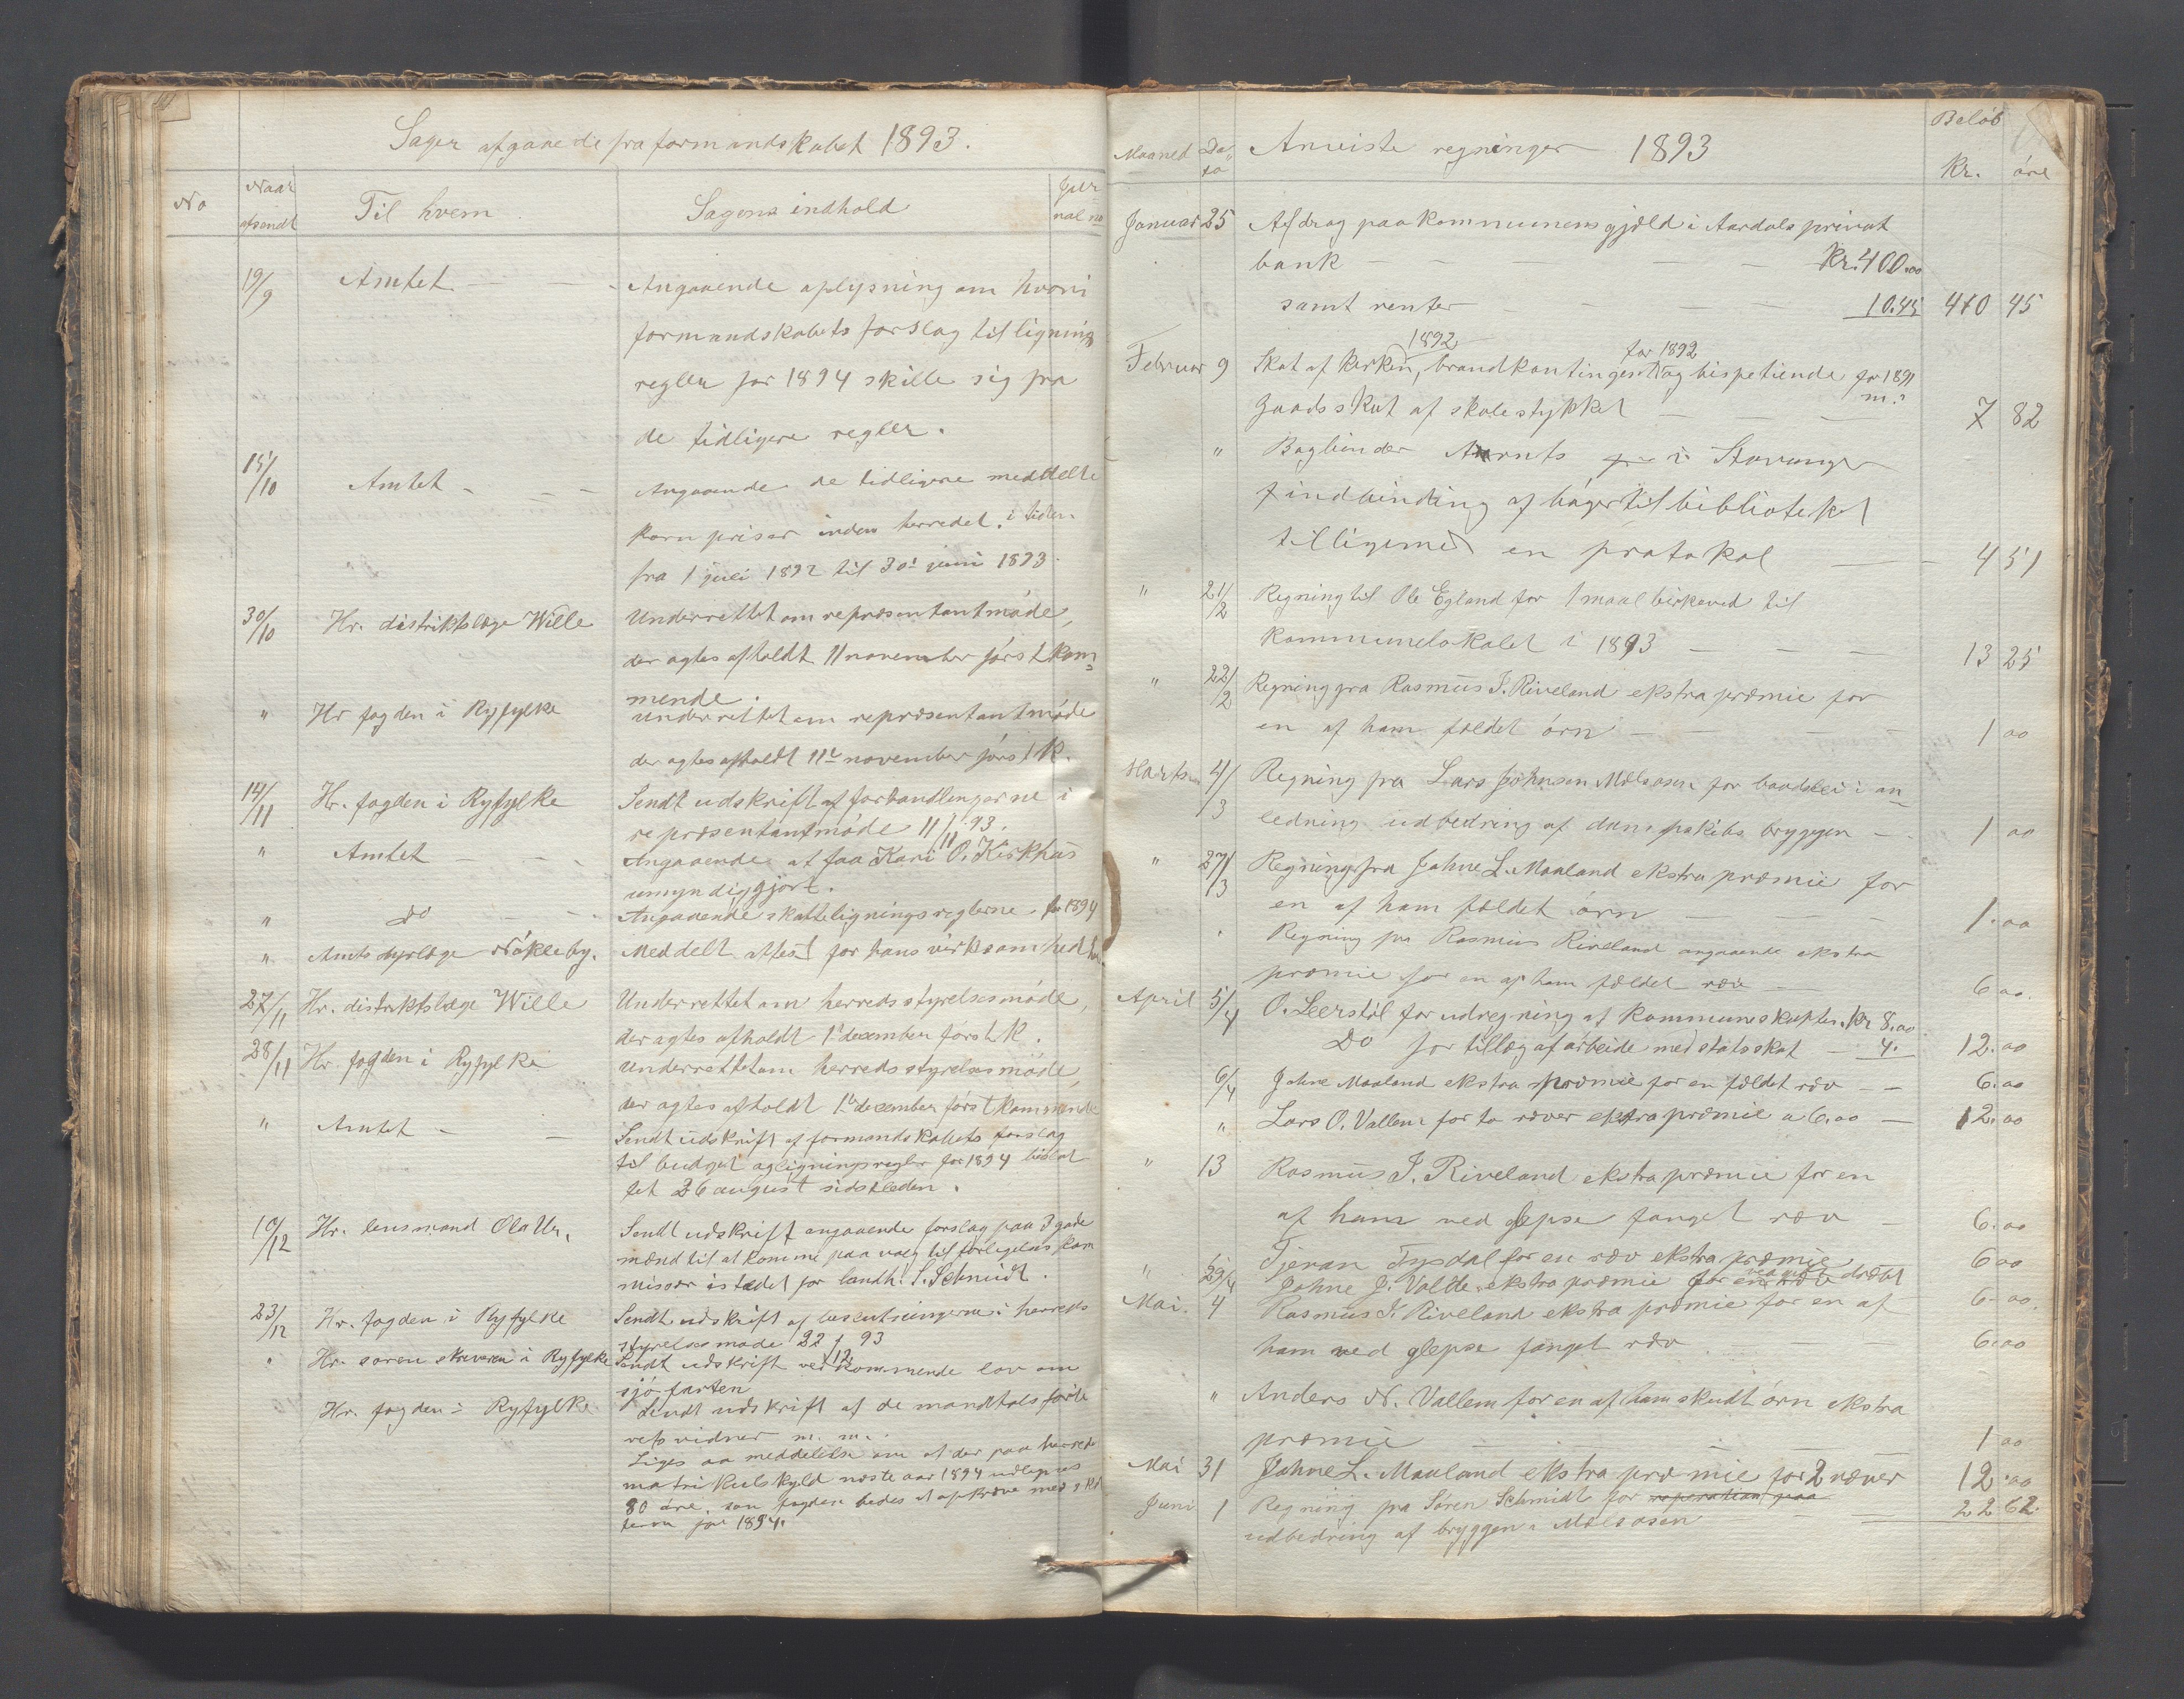 Sager afgaaende fra formandskabet 1893.
No
Naar afsendt
Til hvem
Sagens indhold
Jurnal no
19/9 Amtet Angaaende oplysning om hvori
formandskabets forslag til ligning
regler for 1894 skille sig fra
de tidligere regler.
15/10 Amtet Angaaende de tidligere meddelte
korn priser inden herredet i tiden
fra 1 juli 1892 til 30' juni 1893.
30/10 Hr. distriktslæge Wille Underrettet om repræsentantmøde,
der agtes afholdt 11 november først kom
mende.
" Hr fogden i Ryfylke Underrettet om repræsentantmøde
der agtes afholdt 11' november først k.
14/11 Hr. fogden i Ryfylke Sendt udskrift af forhandlingerne i
repræsentantmøde 11/11 93.
" Amtet Angaaende at faa Kari O. Kirkhus
umyndiggjort.
" Do Angaaende skatteligningsreglerne for 1894
" Amtsdyrlæge Nøkleby. Meddelt attest for hans virksomhed
27/11 Hr. distriktslæge Wille Underrettet om herredsstyrelsesmøde,
der agtes afholdt 1' december først k.
28/11 Hr. fogden i Ryfylke Underrettet om herredsstyrelsesmøde,
der agtes afholdt 1' december først kommende
" Amtet Sendt udskrift af formandskabets forslag
til budget og ligningsregler for 1894 beslut
tet 26 august sidstleden.
10/12 Hr. lensmand Ola Ur. Sendt udskrift angaaende forslag paa 3 gode
mænd til at komme paa valg til forligelses kom
missær istedet for landh. S. Schmidt.
23/12 Hr. fogden i Ryfylke Sendt udskrift af beslutningerne i herreds
styrelsesmøde 22/12 93
" Hr. sorenskriveren i Ryfylke Sendt udskrift vedkommende lov om
sjøfarten
Hr. fogden i Ryfylke Sendt udskrift af de mandtalsførte
retsvidner m. m.
Liges aa meddelelse om at der paa herreds
matrikulskyld næste aar 1894 udlignes
80 øre, som fogden bedes at opkræve med 2
for 1894.
Maaned
Dato
Anviste regninger 1893
Beløb
Kr. øre
Januar 25 Afdrag paa kommunens gjæld i Aardals privat
bank Kr. 400.00
samt renter 10.45 410 45
1892 for 1892
Februar 9 Skat af kirken, brandkontingent og bispetiende for 1891
m.
gaadsskat af skolestykket 7 82
" Bogbinder Aarnts i Stavanger
f indbinding af bøger til biblioteket
tilligemed en protokol 4 51
" 21/2 Regning til Ole Egland for 1 maal birkeved til
kommunelokalet i 1893 13 25
" 22/2 Regning fra Rasmus J. Riveland ekstra præmie for
en af ham fældet ørn 1 00
Marts 4/3 Regning fra Lars Johnsen Mælsosen for baadslei i an
ledning udbedring af dampskibs bryggen 1 00
" 27/3 Regning fra Jahne L. Maaland ekstra præmie for
en af ham fældet ørn 1.00
Regning fra Rasmus Riveland angaaende ekstra
præmie for en af ham fældet ræv 6 00.
April 5/4 O. Leerstøl for udregning af kommuneskatten. Kr 8.00
Do for tillæg af arbeide med statsskat 4. 12.00
6/4 Jahne Maaland ekstra præmie for en fældet ræv 6.00
" Lars O. Vallem for to ræver ekstra præmie a 6.00 12.00
" 13 Rasmus J. Riveland ekstra præmie for en
af ham ved glepse fanget ræv 6.00
Tjeran Tysdal for en ræv ekstra præmie 6 00
" 29/4 Jahne J. Valde ekstra præmie for en ræv dræbt 6.00.
Mai. 4 Rasmus J. Riveland ekstra præmie for en af
ham ved glepse fanget ræv 6.00
" Anders N. Vallem for en af ham skudt ørn ekstra
præmie 1 00
Mai 31 Jahne L. Maaland ekstra præmie for 2 ræver 12.00
Juni 1 Regning fra Søren Schmidt for reperation paa 22 62.
udbedring af bryggen i Mælsosen